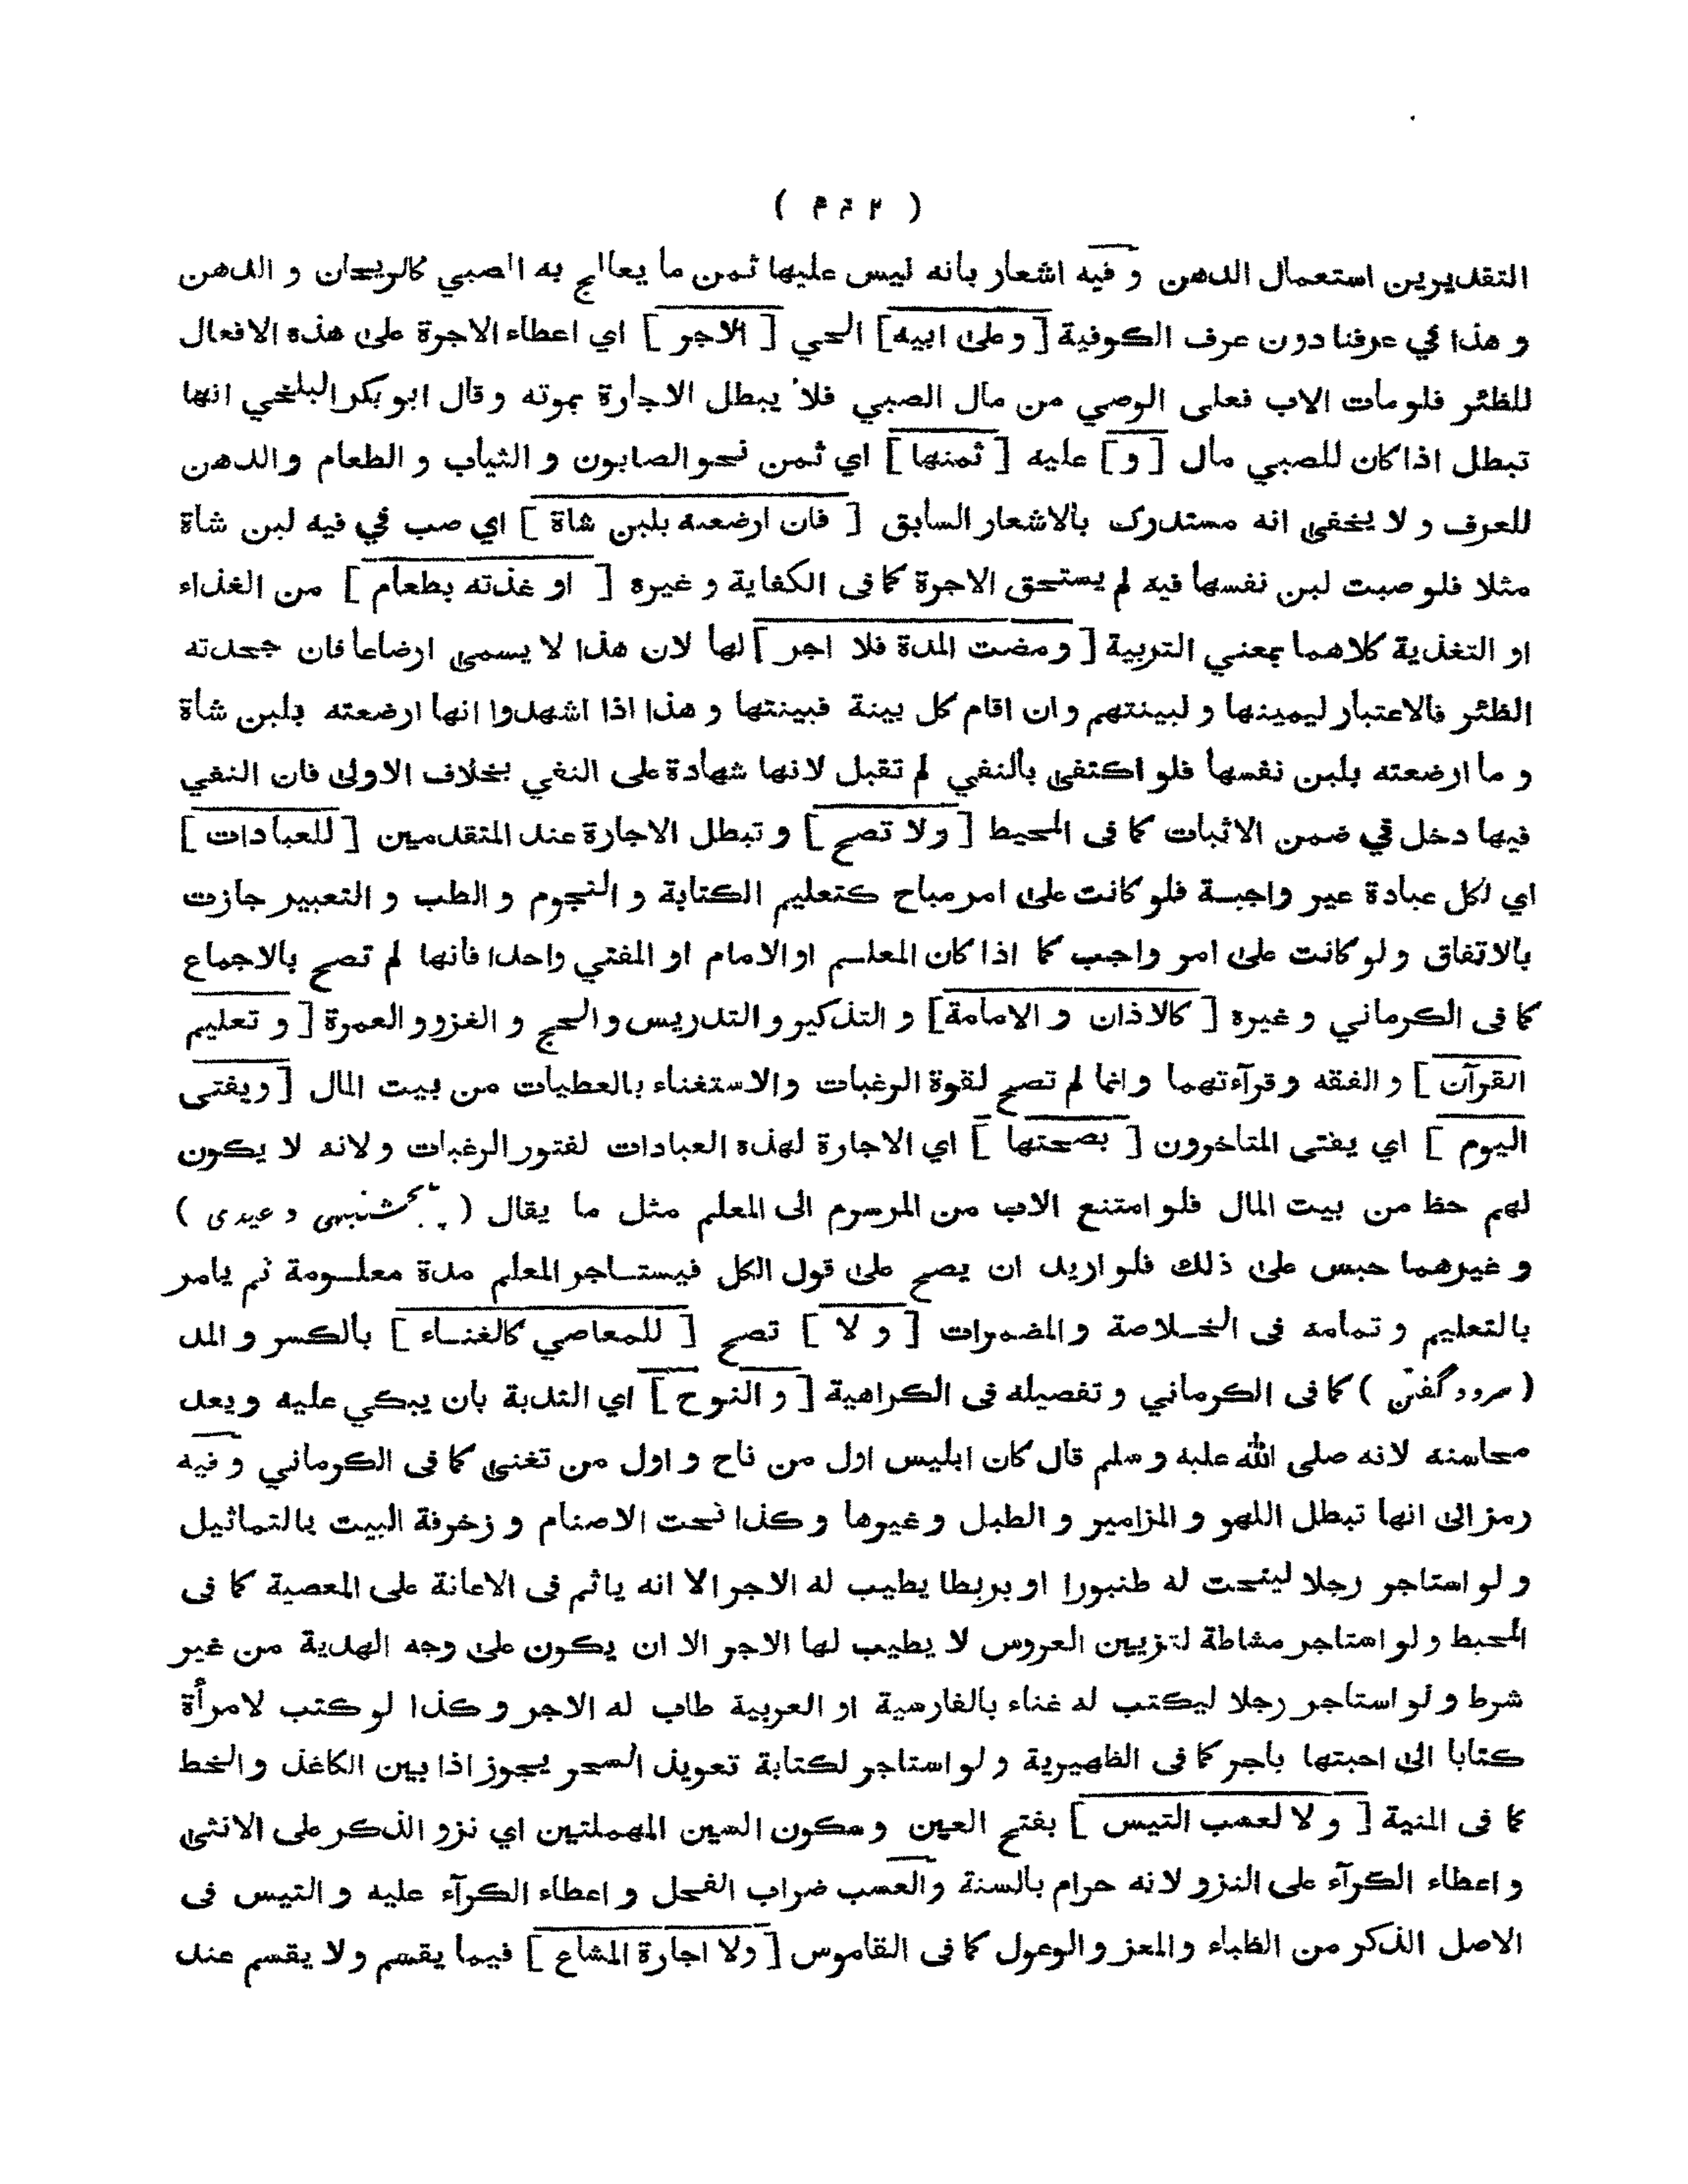 التقديرين استعمال الدهن و فيه اشعار بانه ليس عليها ثمن ما يعالج به الصبي كالريحان و الدهن
و هذا في عرفنا دون عرف الكوفية [ و على ابيه ] الحي [ الاجر ] اي اعطاء الاجرة على هذه الافعال
للظئر فلو مات الاب فعلى الوصي من مال الصبي فلا يبطل الاجارة بموته و قال ابو بكر البلخي انها
تبطل اذا كان للصبي مال [ و ] عليه [ ثمنها ] اي ثمن نحو الصابون و الثياب و الطعام و الدهن
للعرف و لا يخفى انه مستدرك بالاشعار السابق [ فان ارضعته بلبن شاة ] اي صب في فيه لبن شاة
مثلا فلو صبت لبن نفسها فيه لم يستحق الاجرة كما فى الكفاية و غيره [ او غذته بطعام ] من الغذاء
او التغذية كلاهما بمعني التربية [ و مضت المدة فلا اجر ] لها لان هذا لا يسمى ارضاعا فان جحدته
الظئر فالاعتبار ليمينها و لبينتهم و ان اقام كل بينة فبينتها و هذا اذا اشهدوا انها ارضعته بلبن شاة
و ما ارضعته بلبن نفسها فلو اكتفى بالنفي لم تقبل لانها شهادة على النفي بخلاف الاولى فان النفي
فيها دخل في ضمن الاثبات كما فى المحيط [ ولا تصح ] و تبطل الاجارة عند المتقدمين [ للعبادات ]
اي لكل عبادة عير واجبة فلو كانت على امر مباح كتعليم الكتابة و النجوم و الطب و التعبير جازت
بالاتفاق و لو كانت على امر واجب كما اذا كان المعلم او الامام او المفتي واحدا فانها لم تصح بالاجماع
كما فى الكرماني و غيره [ كالاذان و الامامة ] و التذكير و التدريس و الحج و الغزو و العمرة [ و تعليم
القرآن ] و الفقه و قرآءتهما و انما لم تصح لقوة الرغبات والاستغناء بالعطيات من بيت المال [ ويفتى
اليوم ] اي يفتى المتاخرون [ بصحتها ] اي الاجارة لهذه العبادات لفتور الرغبات و لانه لا يكون
لهم حظ من بيت المال فلو امتنع الاب من المرسوم الى المعلم مثل ما يقال ( پنجشنبهى و عيدى )
و غيرهما حبس على ذلك فلو اريد ان يصح على قول الكل فيستاجر المعلم مدة معلومة ثم يامر
بالتعليم و تمامه فى الخلاصة و المضمرات [ و لا ] تصح [ للمعاصي كالغناء ] بالكسر و المد
( سرود گفتن ) كما فى الكرماني و تفصيله فى الكراهية [ و النوح ] اي الندبة بان يبكي عليه و يعد
محاسنه لانه صلى الله عليه و سلم قال كان ابليس اول من ناح و اول من تغنى كما فى الكرماني و فيه
رمز الى انها تبطل اللهو و المزامير و الطبل و غيرها و كذا نحت الاصنام و زخرفة البيت بالتماثيل
و لو استاجر رجلا لينحت له طنبورا او بربطا يطيب له الاجر الا انه ياثم فى الاعانة على المعصية كما فى
المحيط و لو استاجر مشاطة لتزيين العروس لا يطيب لها الاجر الا ان يكون على وجه الهدية من غير
شرط و لو استاجر رجلا ليكتب له غناء بالفارسية او العربية طاب له الاجر و كذا لو كتب لامرأة
كتابا الى احبتها باجر كما فى الظهيرية و لو استاجر لكتابة تعويذ السحر يجوز اذا بين الكاغذ و الخط
كما فى المنية [ و لا لعسب التيس ] بفتح العين و سكون السين المهملتين اي نزو الذكر على الانثى
و اعطاء الكرآء على النزو لانه حرام بالسنة والعسب ضراب الفحل و اعطاء الكرآء عليه و التيس فى
الاصل الذكر من الظباء والمعز و الوعول كما فى القاموس [ ولا اجارة المشاع ] فيما يقسم ولا يقسم عند